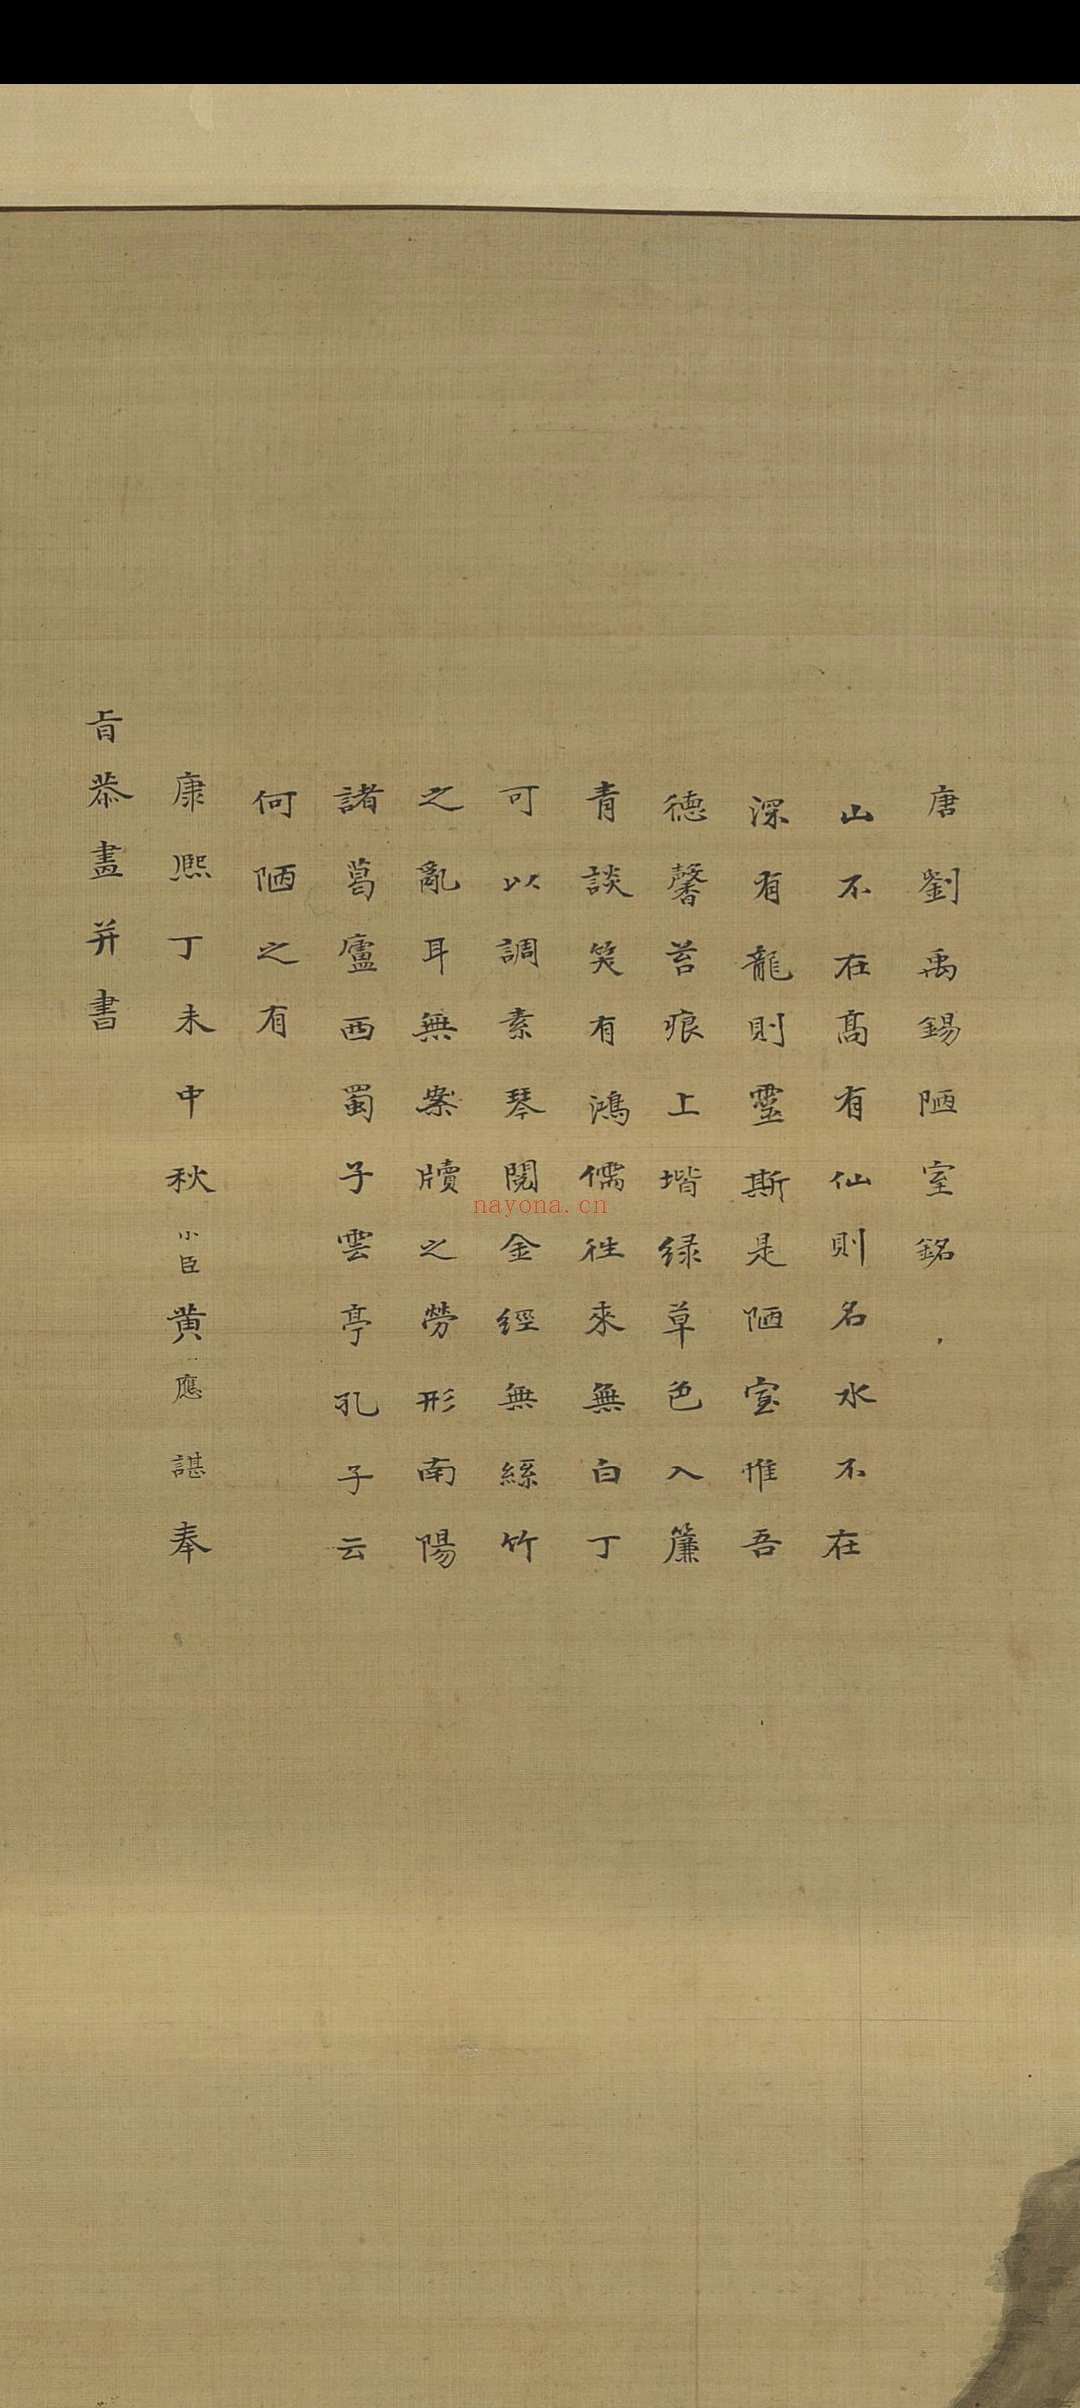 唐劉禹錫陋室銘
山不在高有仙則名水不在
深有龍則靈斯是陋室惟吾
德馨苔痕上堦緑草色入簾
青談笑有鴻儒往來無白丁
可以調素琴閱金經無絲竹
之亂耳無案牘之勞形南陽
諸葛廬西蜀子雲亭孔子云
何陋之有
康熙丁未中秋小臣黃應諶奉
旨恭畫并書
nayona.cn